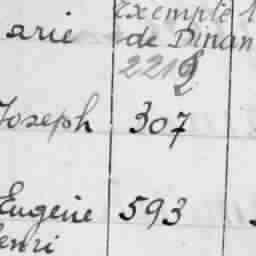 exempté
arie de Dinan
221
Joseph 307
Eugène 593
enri